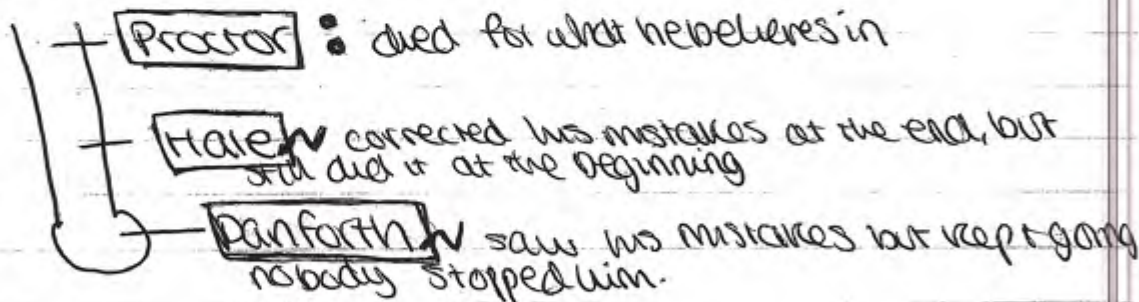 Proctor : died for what he believes in
Hale ~ corrected his mistakes at the end, but
still did it at the beginning
Danforth ~ saw his mistakes but kept going
nobody stopped him.